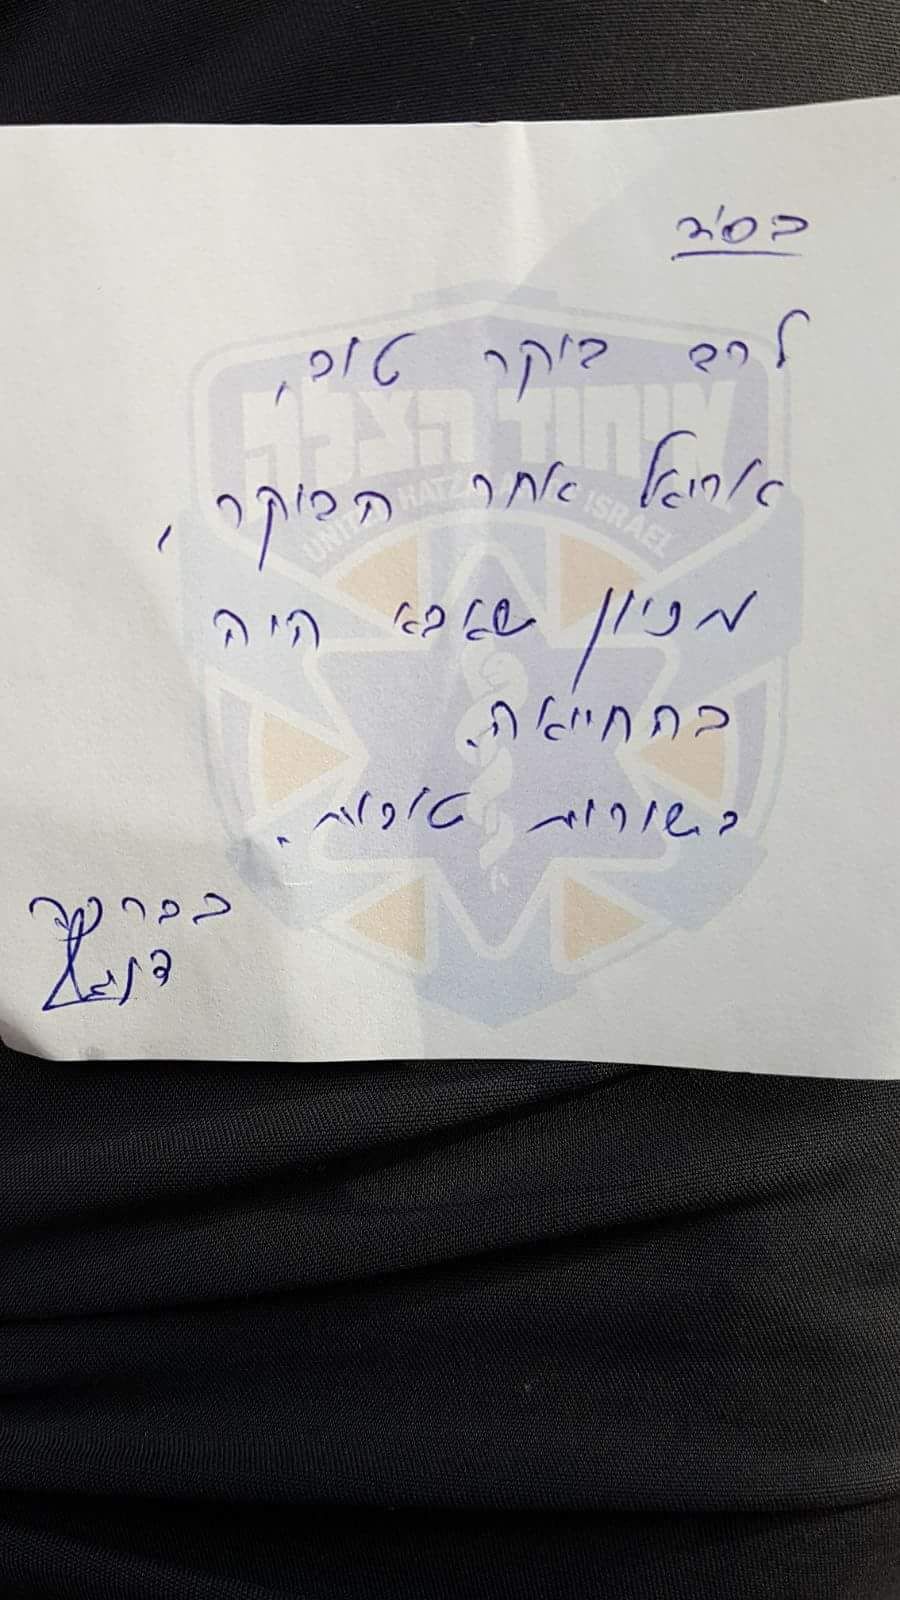 בס"ד
לרב בוקר טוב,
אוריאל אחר הבוקר,
מכיון שאבא היה
בהחייאה.
בשורות טובות.
בברכה
דניאל
איחוד הצלה
UNITED HATZALAH ISRAEL